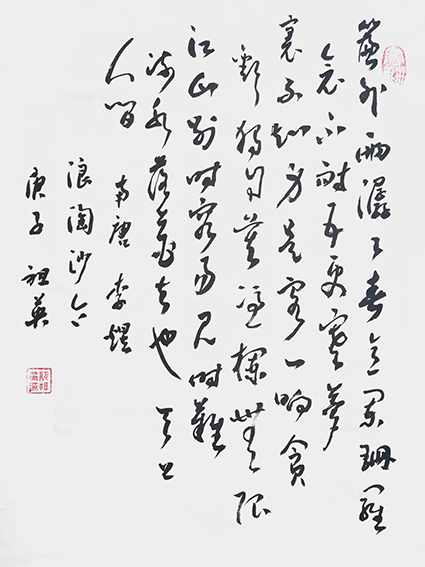 簾外雨潺々春意阑珊羅
衾不耐五更寒夢
裏不知身是客一响貪
歡獨自莫憑欄無限
江山别时容易见时難
流水落花去也天上
人間 南唐 李煜
浪淘沙令
庚子 祖英